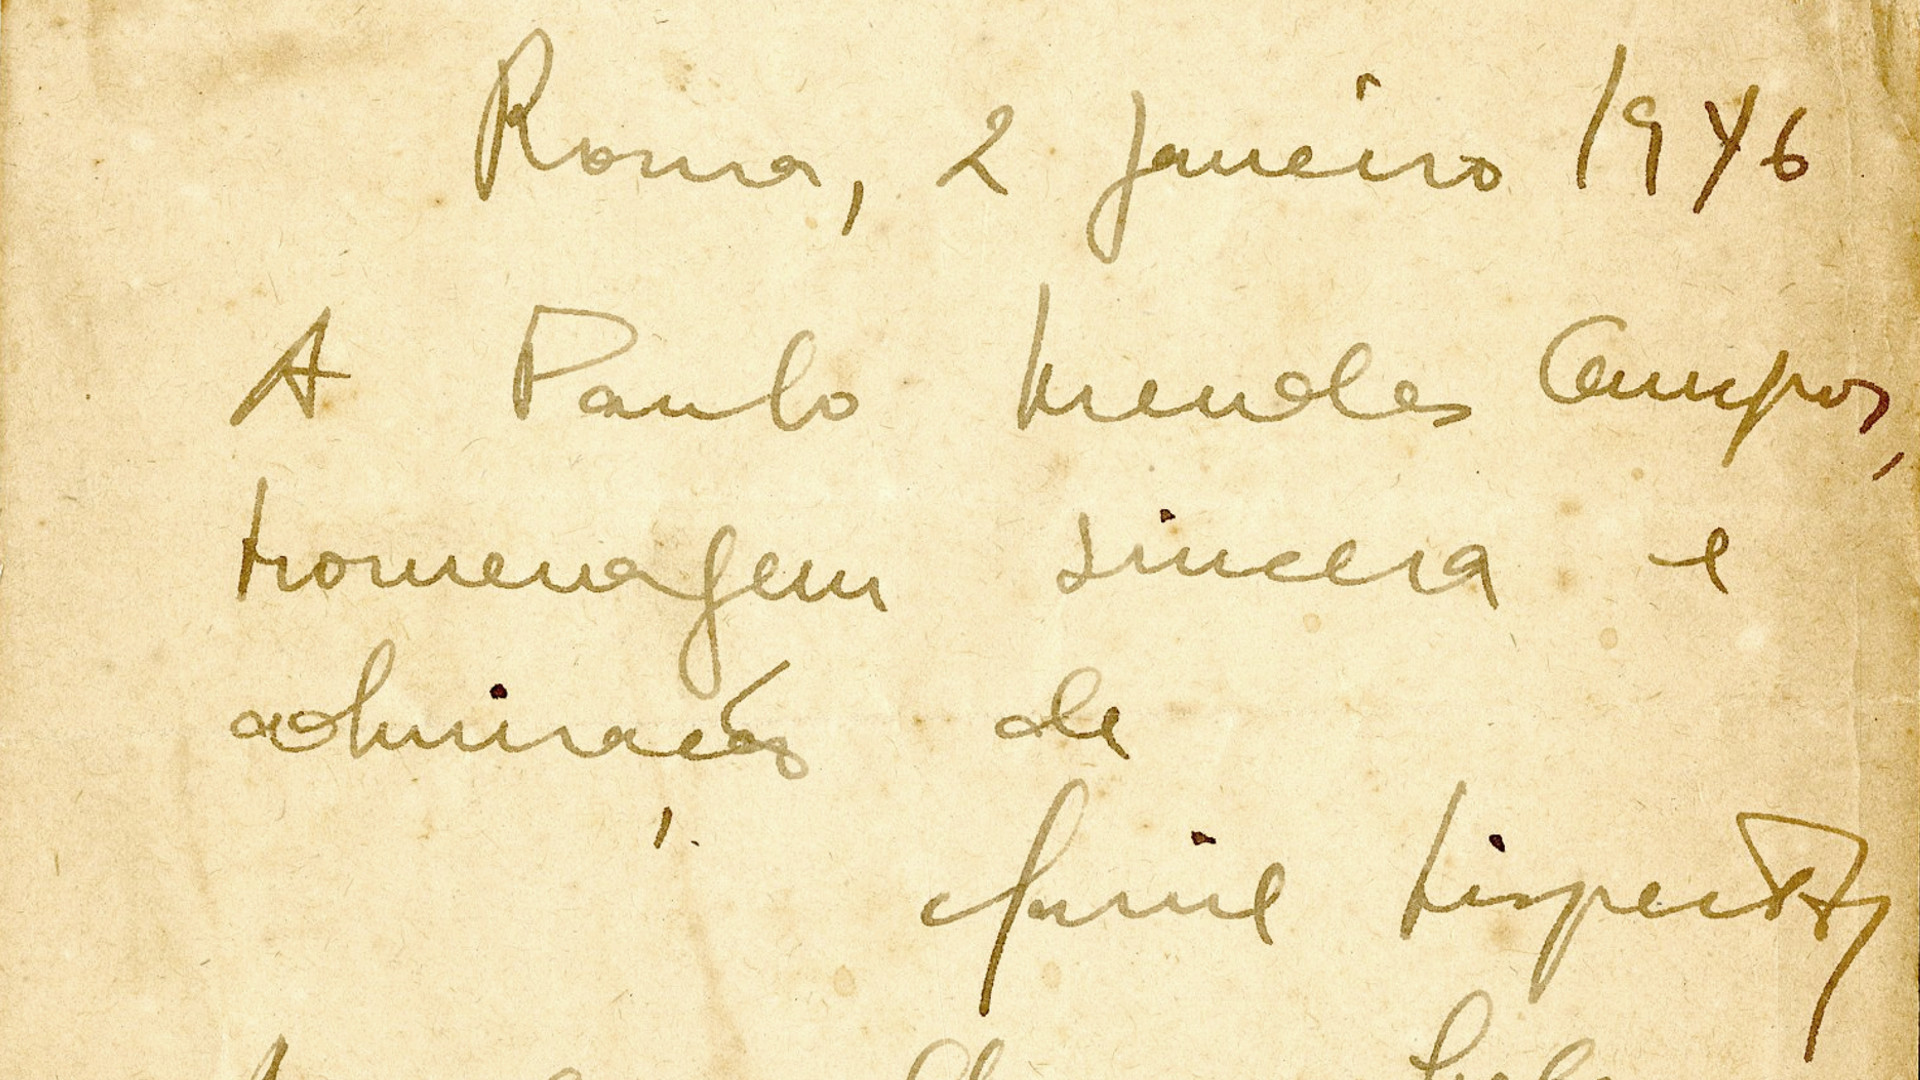 Roma, 2 Janeiro 1946
A Paulo Mendes Campos,
Homenagem sincera e
admiração de
Clarice Lispector